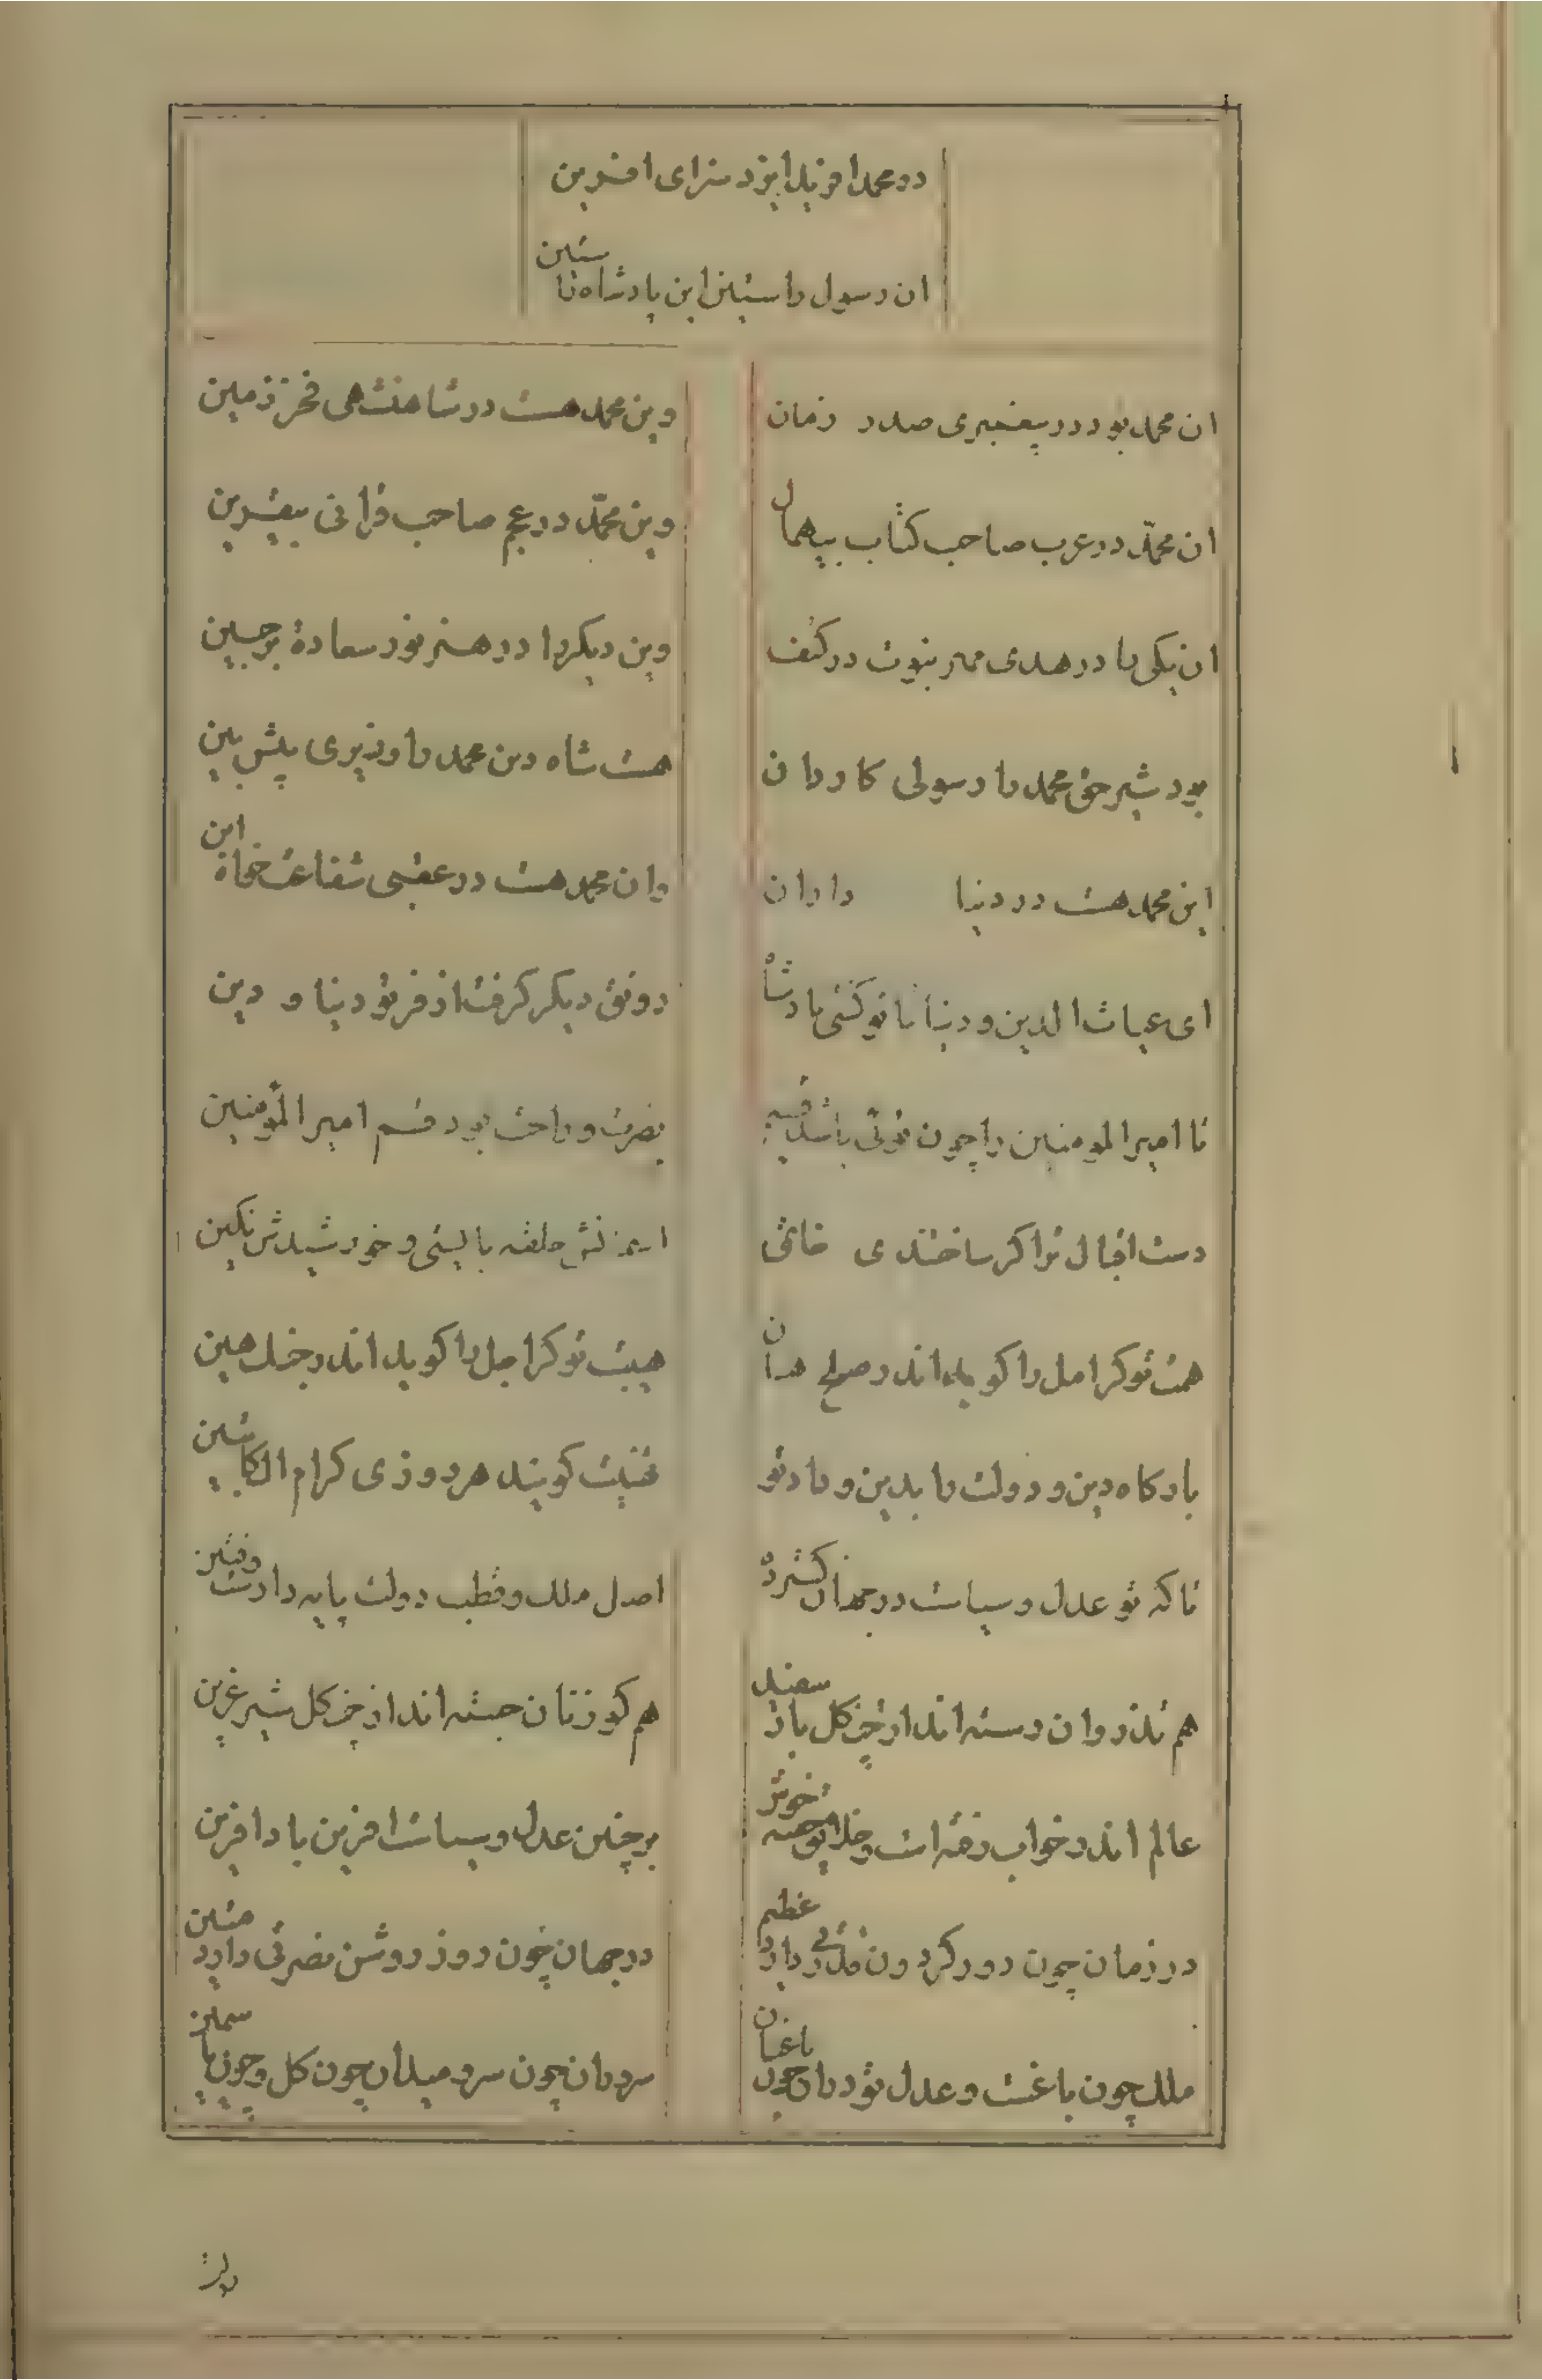 دو محمد افرید ایزد سزای افرین
ان رسول راستین این پادشاه تاستین
ان محمد بود در پیغمبری صدر زمان
وین محمد هست در شاهنشهی فخر زمین
ان محمّد در عرب صاحب کتاب بیهمال
وین محمّد در عجم صاحب قرانی بیقرین
ان یکی را در هدی مهر نبوت در کتف
وین دیکر را در هنر نور سعادة بر جبین
بود شیر حق محمد را رسولی کاردان
هست شاه دین محمد را وزیری پیش بین
این محمد هست در دنیا داران
وان محمد هست در عقبی شفاعت خواه این
ای غیاث الدین و دنیا تا تو کشتی پادشاه
رونق دیکر کرفت از فر تو دنیا و دین
تا امیر المومنین را چون توئی باشد قسیم
نصرت و راحت بود قسم امیر المؤمنین
دست اقبال ترا کر ساختندی خاتمی
حلقه بایستی و خورشیدش نکین
همت تو کر امل را کوید اندر صلح هان
هیبت تو کر اجل را کوید اندر جنک هین
بارکاه دین و دولت را بدین و داد تو
تهنیت کویند هر روزی کرام الکاتبین
تا که تو عدل و سیاست در جهان کسترده
اصل ملک و قطب دولت پایدارست و متین
هم تذروان رسته اند از چنکل باز سفید
هم کوزنان جسته اند از چنکل شیر عرین
عالم اندر خواب رفته است و خلایق جمله خوش
بر چنین عدل و سیاست افرین باد افرین
در زمان چون دور کردون قدرتی داری عظیم
در جهان چون روز روشن نصرتی داری مبین
ملک چون باغست و عدل تو در ان چون باغبان
سروران چون سرو و میران چون کل و چون یاسمین